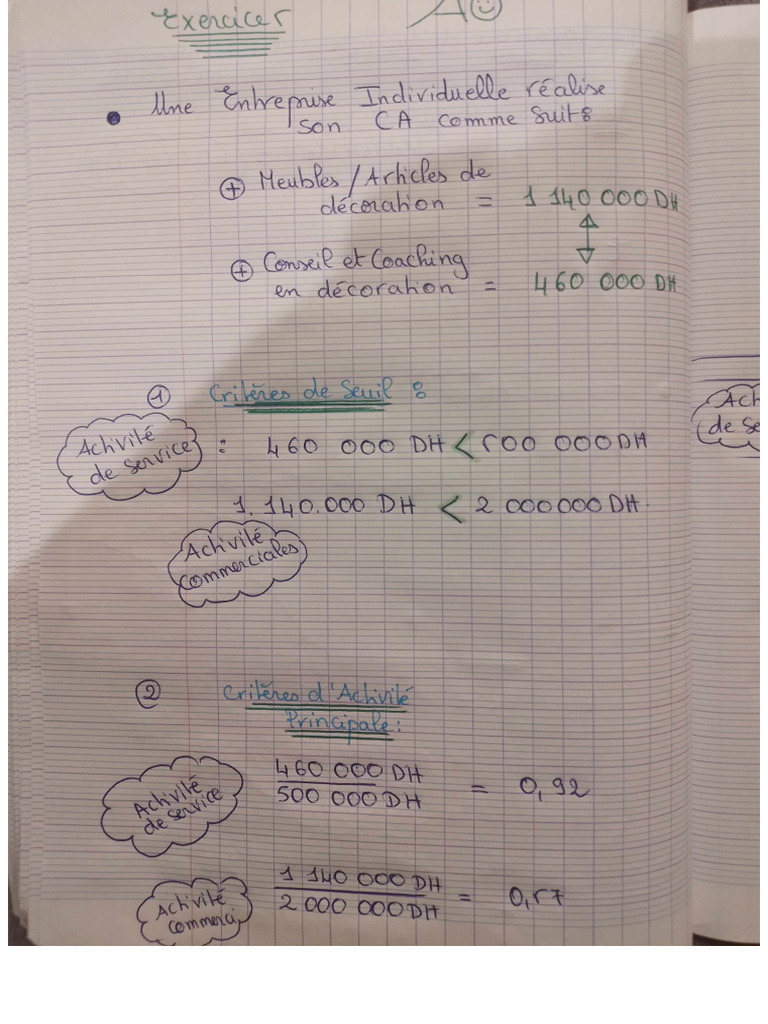 Exercice
Une Entreprise Individuelle réalise
son CA comme suit :
+ Meubles / Articles de
décoration = 1 140 000 DH
+ Conseil et Coaching
en décoration = 460 000 DH
① Critères de Seuil :
Activité
de service : 460 000 DH < 500 000 DH
1.140.000 DH < 2 000 000 DH.
Activité
commerciales
② Critères d'Activité
Principale :
Activité
de service
460 000 DH
500 000 DH
= 0,92
Activité
commerci
1 140 000 DH
2 000 000 DH
= 0,57